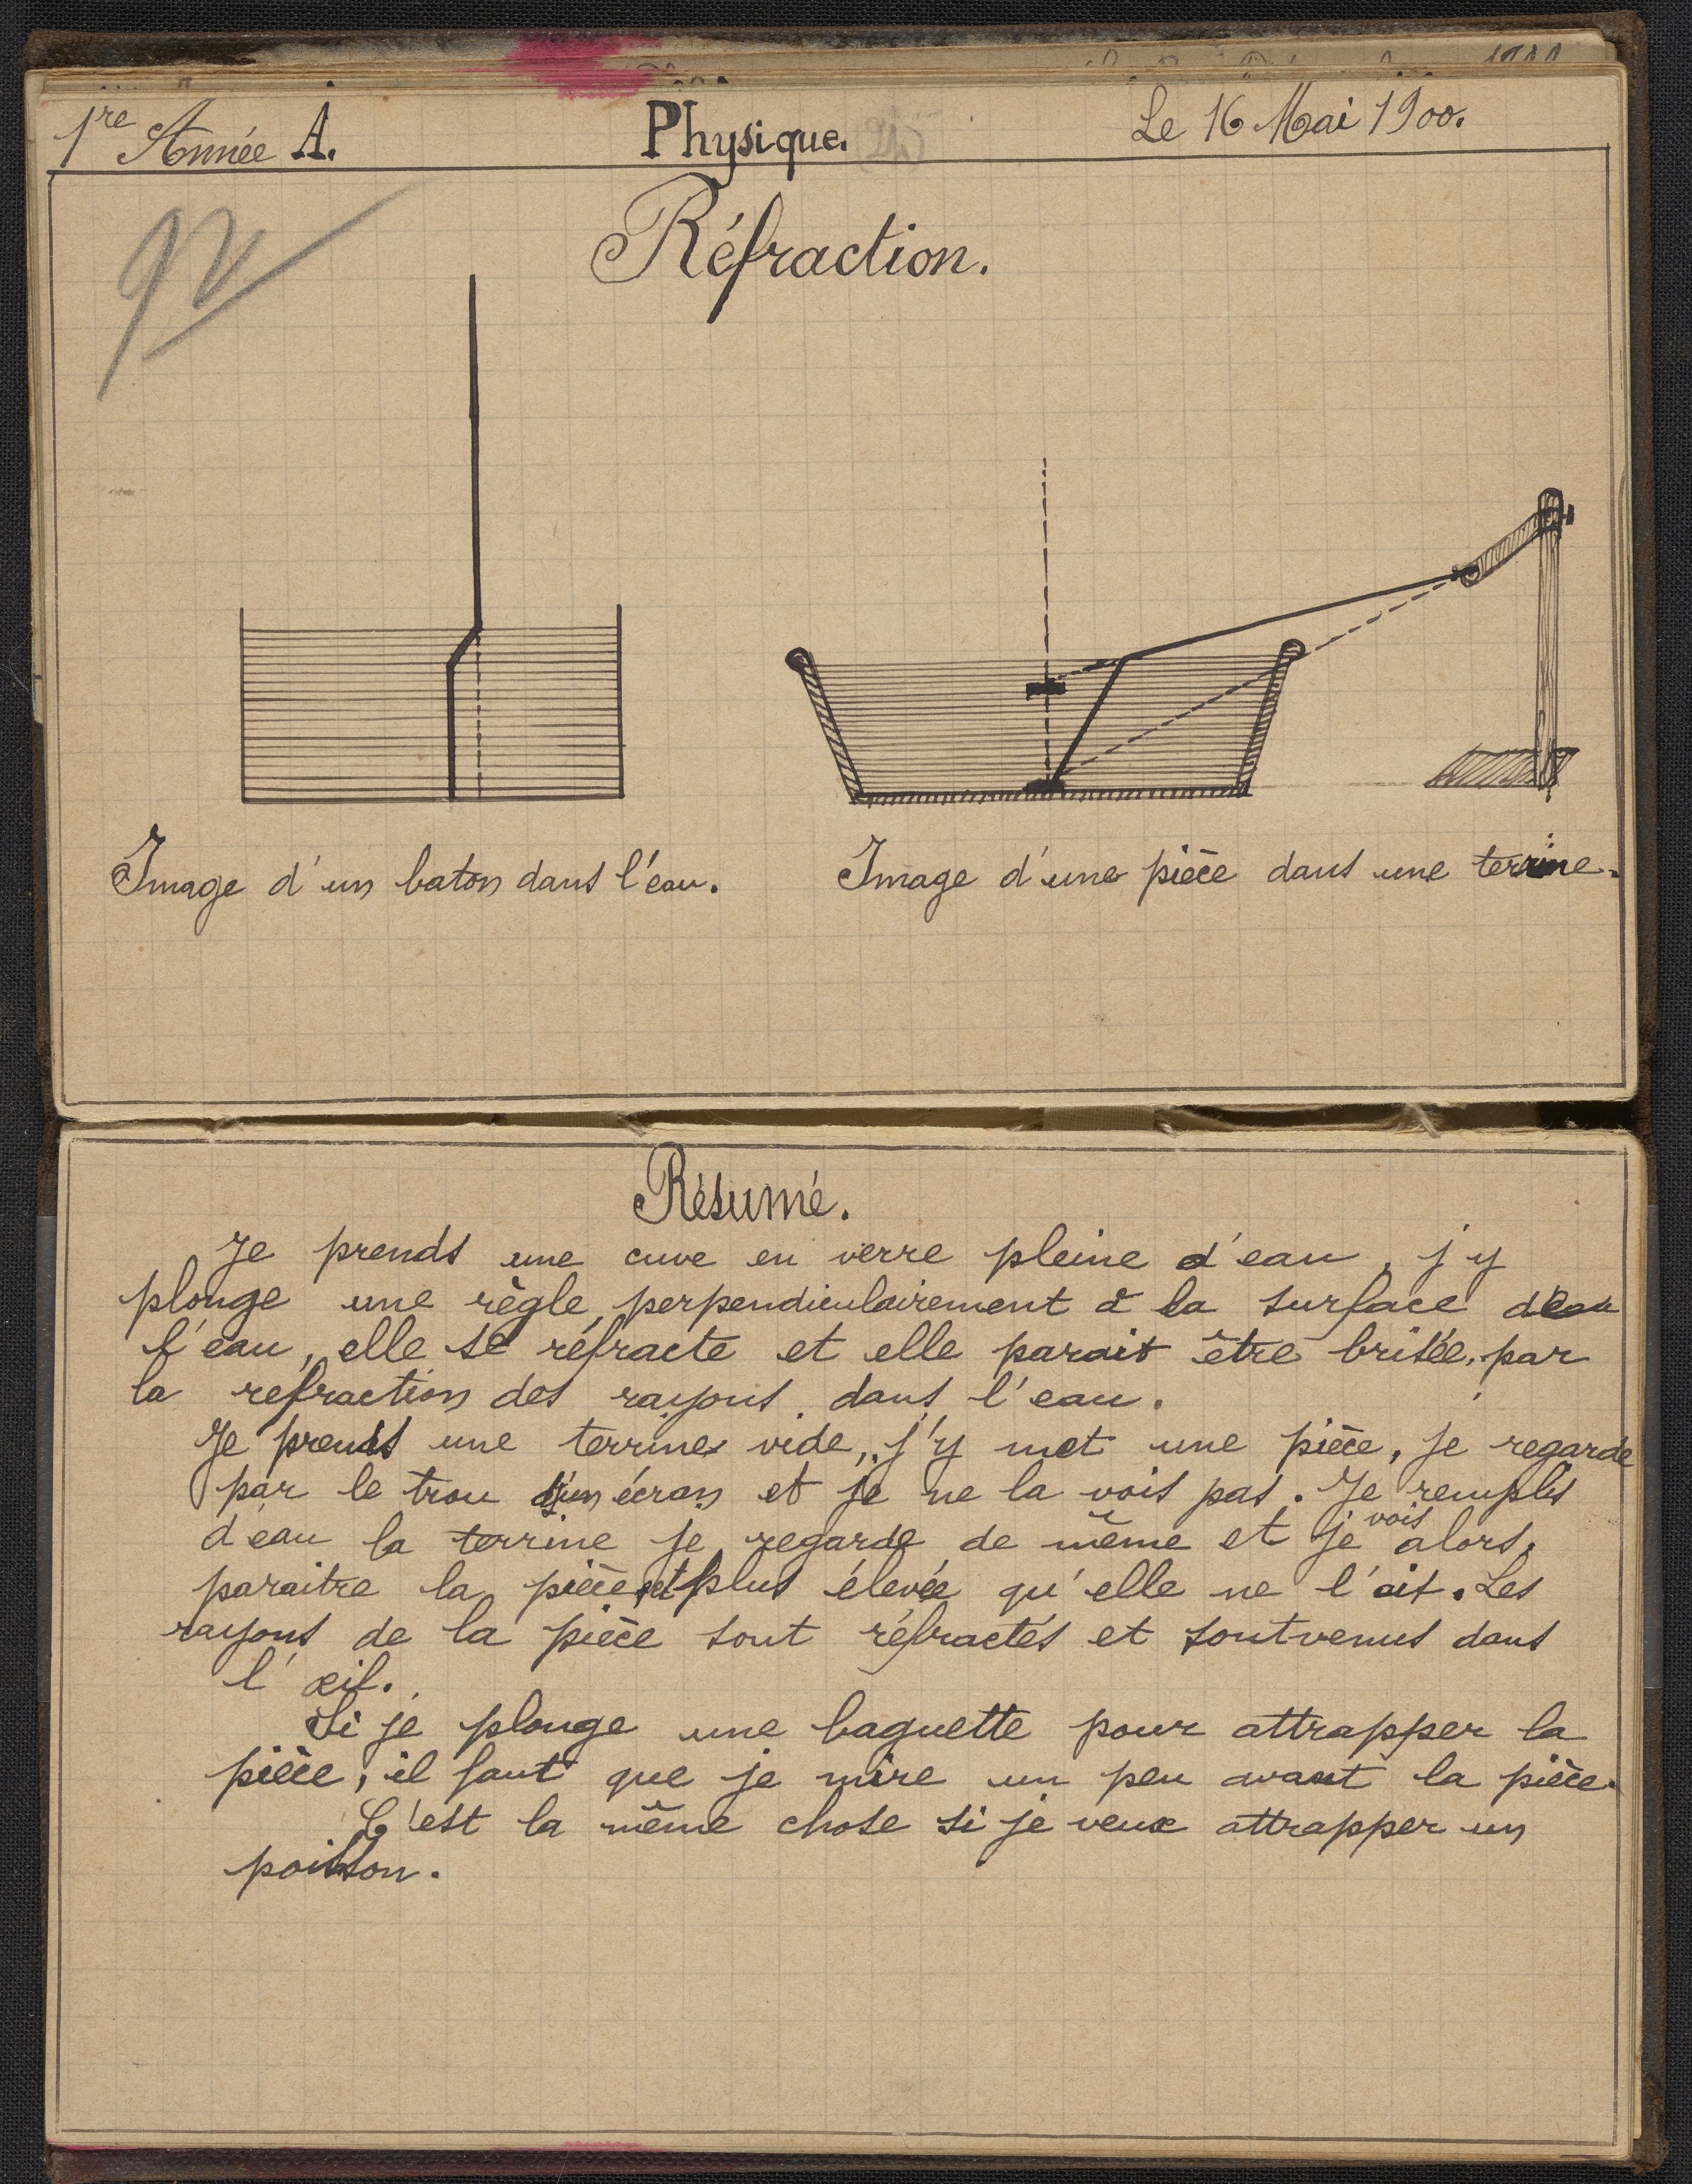 1re Année A.
Physique.
Le 16 Mai 1900.
Réfraction.
Image d'un baton dans l'eau.
Image d'une pièce dans une terrine.
Résumé.
Je prends une cuve en verre pleine d'eau, j'y
plonge une règle, perpendiculairement à la surface de
l'eau, elle se réfracte et elle parait être brisée, par
la refraction des rayons dans l'eau.
Je prends une terrine vide, j'y met une pièce, je regarde
par le trou d'un écran et je ne la vois pas. Je remplis
d'eau la terrine je regarde de même et je vois alors,
paraitre la pièce et plus élevée qu'elle ne l'ait. Les
rayons de la pièce sont réfractés et sont venus dans
l'œil.
Si je plonge une baguette pour attrapper la
pièce, il faut que je mire un peu avant la pièce.
C'est la même chose si je veux attrapper un
poisson.